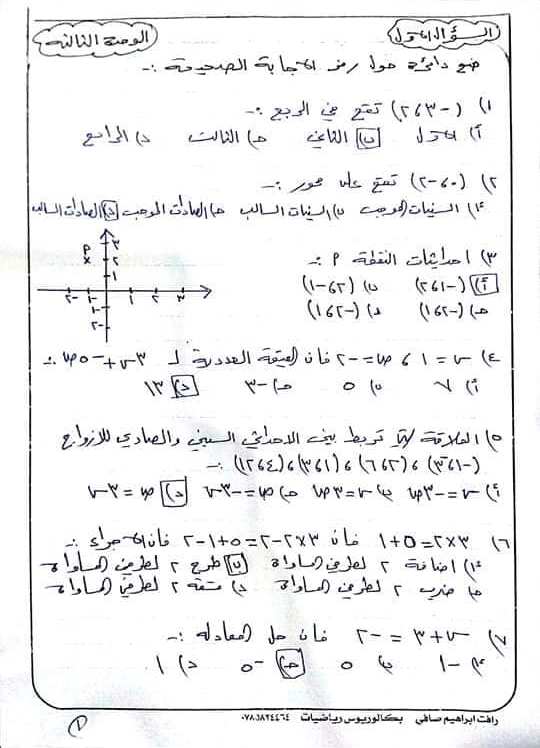 السؤال الأول
الوحدة الثالثة
ضع دائرة حول رمز الاجابة الصحيحة :-
١) (-٣، ٢) تقع في الربع :-
أ) الأول ب) الثاني ج) الثالث د) الرابع
٢) (٠، -٢) تقع على محور :-
أ) السينات الموجب ب) السينات السالب ج) الصادات الموجب د) الصادات السالب
٣) احداثيات النقطة م :-
أ) (-١، ٢) ب) (٢، -١)
ج) (-٢، ١) د) (-٢، ١)
م
×
٣
٢
١
-٢ -١ ١ ٢ ٣
-١
-٢
٤) س = ١ ، ص = -٢ فان القيمة العددية لـ ٣س + -٥ص :-
أ) ٧ ب) ٥ ج) -٣ د) ١٣
٥) العلاقة التي تربط بين الاحداثي السيني والصادي للازواج
(-١، -٣) ، (٢، ٦) ، (١، ٣) ، (٤، ١٢) :-
أ) س = -٣ص ب) س = ٣ص ج) ص = -٣س د) ص = ٣س
٦) ٣×٢ = ٥+١ فان ٣×٢-٢ = ٥+١-٢ فان الاجراء :-
أ) اضافة ٢ لطرفي المساواة ب) طرح ٢ لطرفي المساواة
ج) ضرب ٢ لطرفي المساواة د) قسمة ٢ لطرفي المساواة
٧) س + ٣ = -٢ فان حل المعادلة :-
أ) -١ ب) ٥ ج) -٥ د) ١
رافت ابراهيم صافي بكالوريوس رياضيات
١